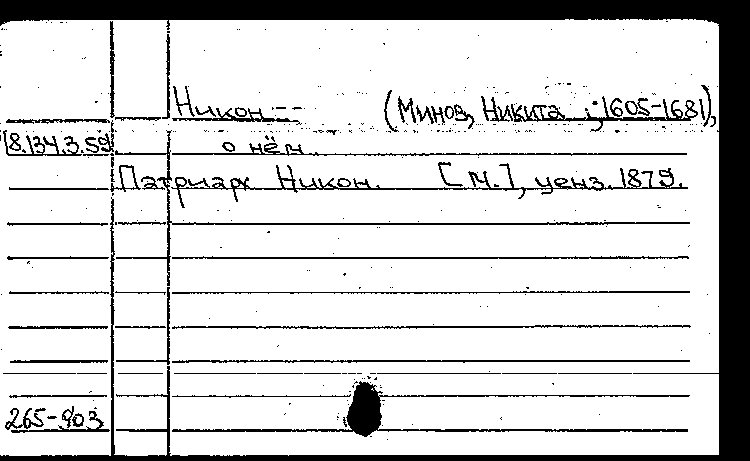 Никон -- (Минов, Никита ; 1605-1681),
18.134.3.59. о нём.
Патриарх Никон. [М.], ценз. 1879.
265-903